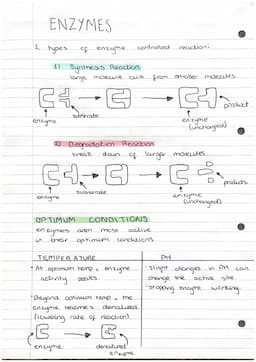 ENZYMES
2 types of enzyme controlled reaction:
1) Synthesis Reaction
large molecule built from smaller molecules
enzyme
substrate
enzyme
(unchanged)
product
2) Degradation Reaction
break down of larger molecules.
enzyme
substrate
enzyme
(unchanged)
products
OPTIMUM CONDITIONS
enzymes are most active
in their optimum conditions.
TEMPERATURE
PH
* At optimum temp, enzyme
activity peaks.
* Beyond optimum temp, the
enzyme becomes denatured
(lowering rate of reaction).
* Slight changes in PH can
change the active site
stopping enzyme working.
enzyme
denatured
enzyme